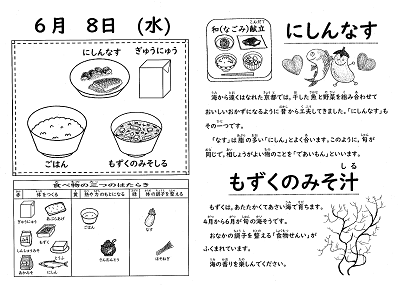 6月 8日 (水)
にしんなす
ぎゅうにゅう
ごはん
もずくのみそしる
食べ物の三つのはたらき
体をつくる
熱や力のもとになる
体の調子を整える
ぎゅうにゅう
あぶらあげ
ごはん
なす
もずく
みそ
さんおんとう
ほそねぎ
にしん
とうふ
和(なごみ)献立
こんだて
にしんなす
海から遠くはなれた京都では、干した魚と野菜を組み合わせて
おいしいおかずになるように昔から工夫してきました。「にしんなす」も
その一つです。
「なす」は脂の多い「にしん」とよく合います。このように、旬が
同じで、相しょうがよい物のことを「であいもん」といいます。
もずくのみそ汁
しる
もずくは、あたたかくてあさい海で育ちます。
4月から6月が旬の海そうです。
おなかの調子を整える「食物せんい」が
ふくまれています。
海の香りを楽しんでください。